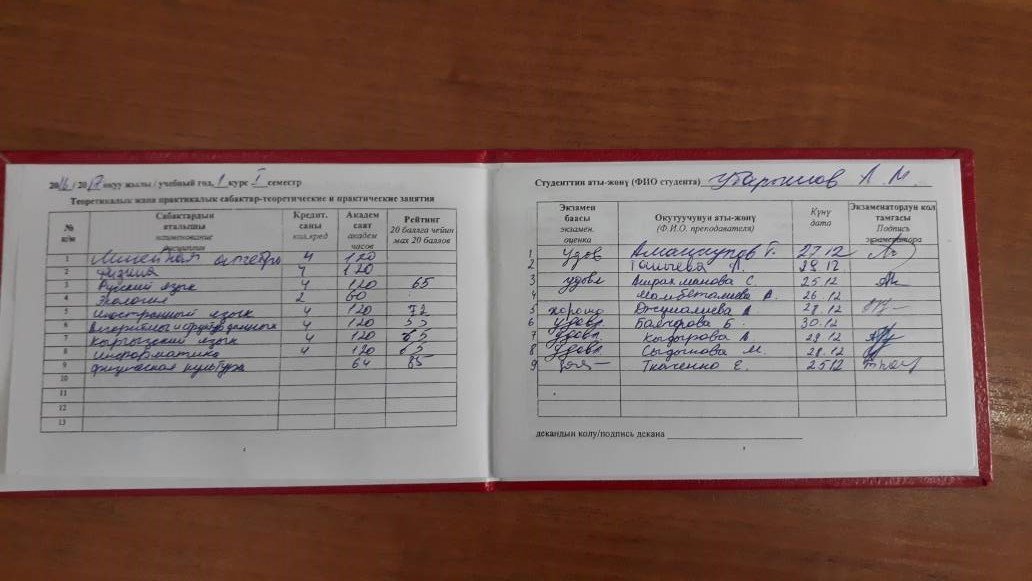 2016/2017 окуу жылы / учебный год, 1 курс I семестр
Теоретикалык жана практикалык сабактар-теоретические и практические занятия
№ п/п Сабактардын аталышы наименование дисциплин Кредит. саны кол.кред Академ саат академ часов Рейтинг 20 баллга чейин мах 20 баллов
1 Линейная алгебра 4 120
2 Физика 4 120
3 Русский язык 4 120 65
4 Экология 2 60
5 Иностранный язык 4 120 72
6 Алгоритмы и 4 120 55
7 Кыргызский язык 4 120 65
8 Информатика 4 120 65
9 Физическая культура 64 85
10
11
12
13
Студенттин аты-жөнү (ФИО студента) А. М.
Экзамен баасы экзамен. оценка Окутуучунун аты-жөнү (Ф.И.О. преподавателя) Күнү дата Экзаменатордун кол тамгасы Подпись экзаменатора
1 удов Т. 27 12
2 29 12
3 удовл С. 25 12
4 Мамбеталиева А. 26 12
5 хорошо А. 28 12
6 удовл Б. 30.12
7 удовл Кадырова А 29 12
8 удовл Сыдыкова М. 28.12
9 Ткаченко Е. 25 12
декандын колу/подпись декана